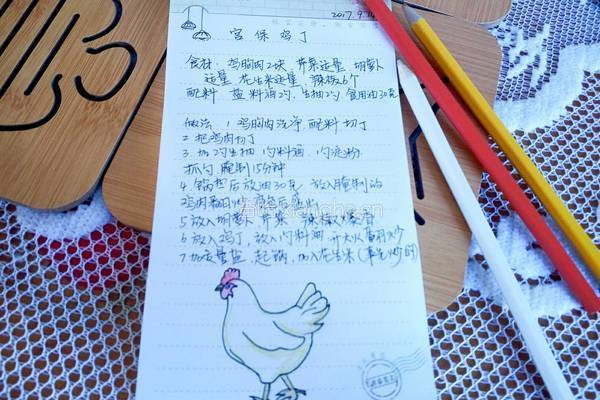 2017.9.16
宫保鸡丁
食材: 鸡胸肉2块 芹菜适量 胡萝卜
适量 花生米适量 辣椒6个
配料 盐 料酒2勺 生抽2勺 食用油30克
做法 1 鸡胸肉洗净 配料切丁
2 把鸡肉切丁
3 加2勺生抽 1勺料酒 1勺淀粉
抓匀 腌制15分钟
4 锅热后放油30克 放入腌制的
鸡肉翻炒 变色后盛出
5 放入胡萝卜 芹菜 辣椒爆香
6 放入鸡丁, 放入1勺料酒 开大火翻炒
7 加适量盐 起锅, 加入花生米(事先炒的)